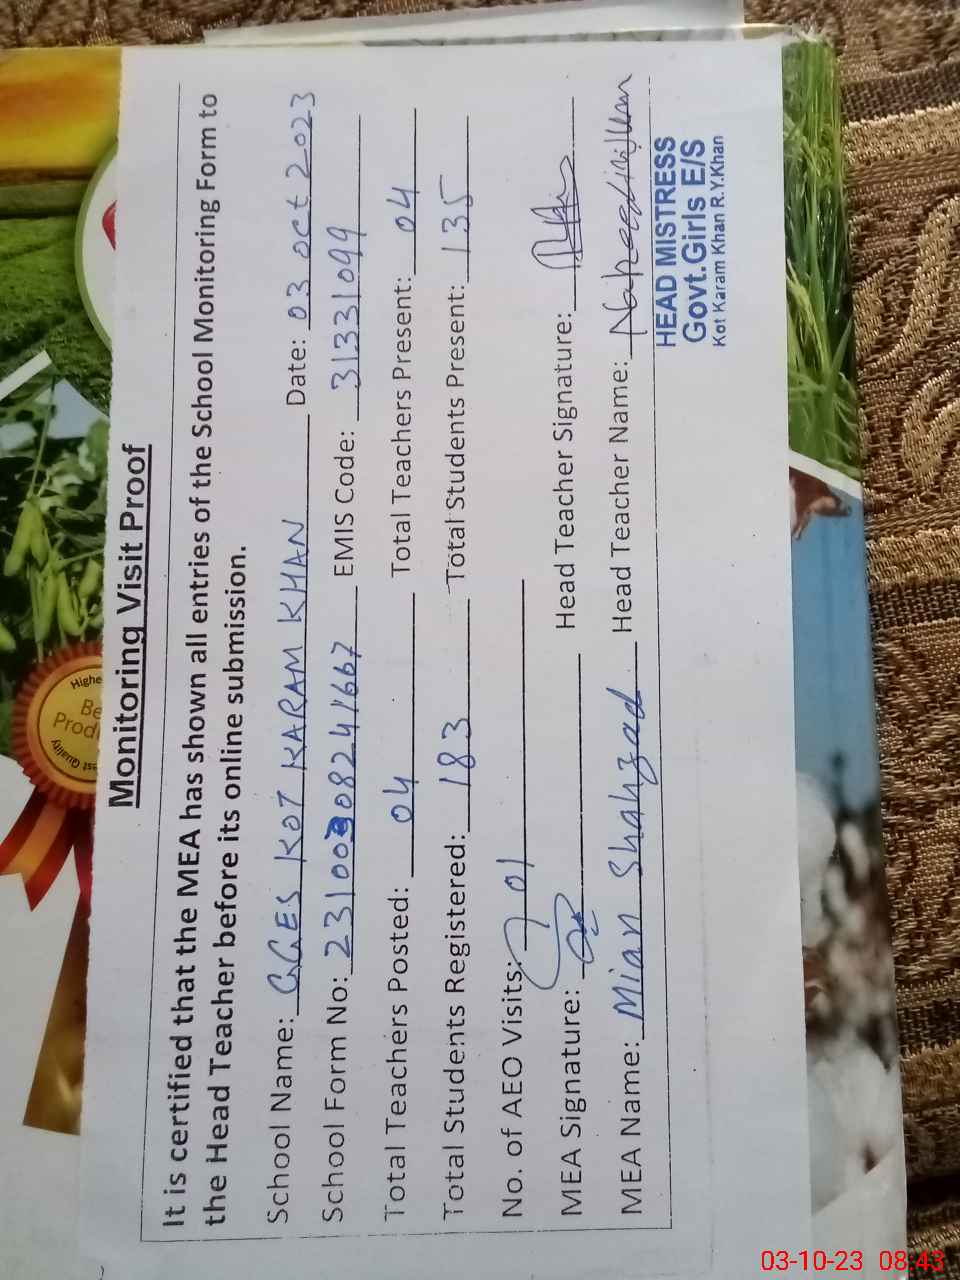 Monitoring Visit Proof
It is certified that the MEA has shown all entries of the School Monitoring Form to
the Head Teacher before its online submission.
School Name: GGES KOT KARAM KHAN Date: 03 Oct 2023
School Form No: EMIS Code: 31331099
Total Teachers Posted: 04 Total Teachers Present: 04
Total Students Registered: 183 Total Students Present: 135
No. of AEO Visits: 01
MEA Signature: Head Teacher Signature:
MEA Name: Mian Shahzad Head Teacher Name:
HEAD MISTRESS
Govt.Girls E/S
Kot Karam Khan R.Y.Khan
Highe
Be
Prod
est Quality
03-10-23 08:43